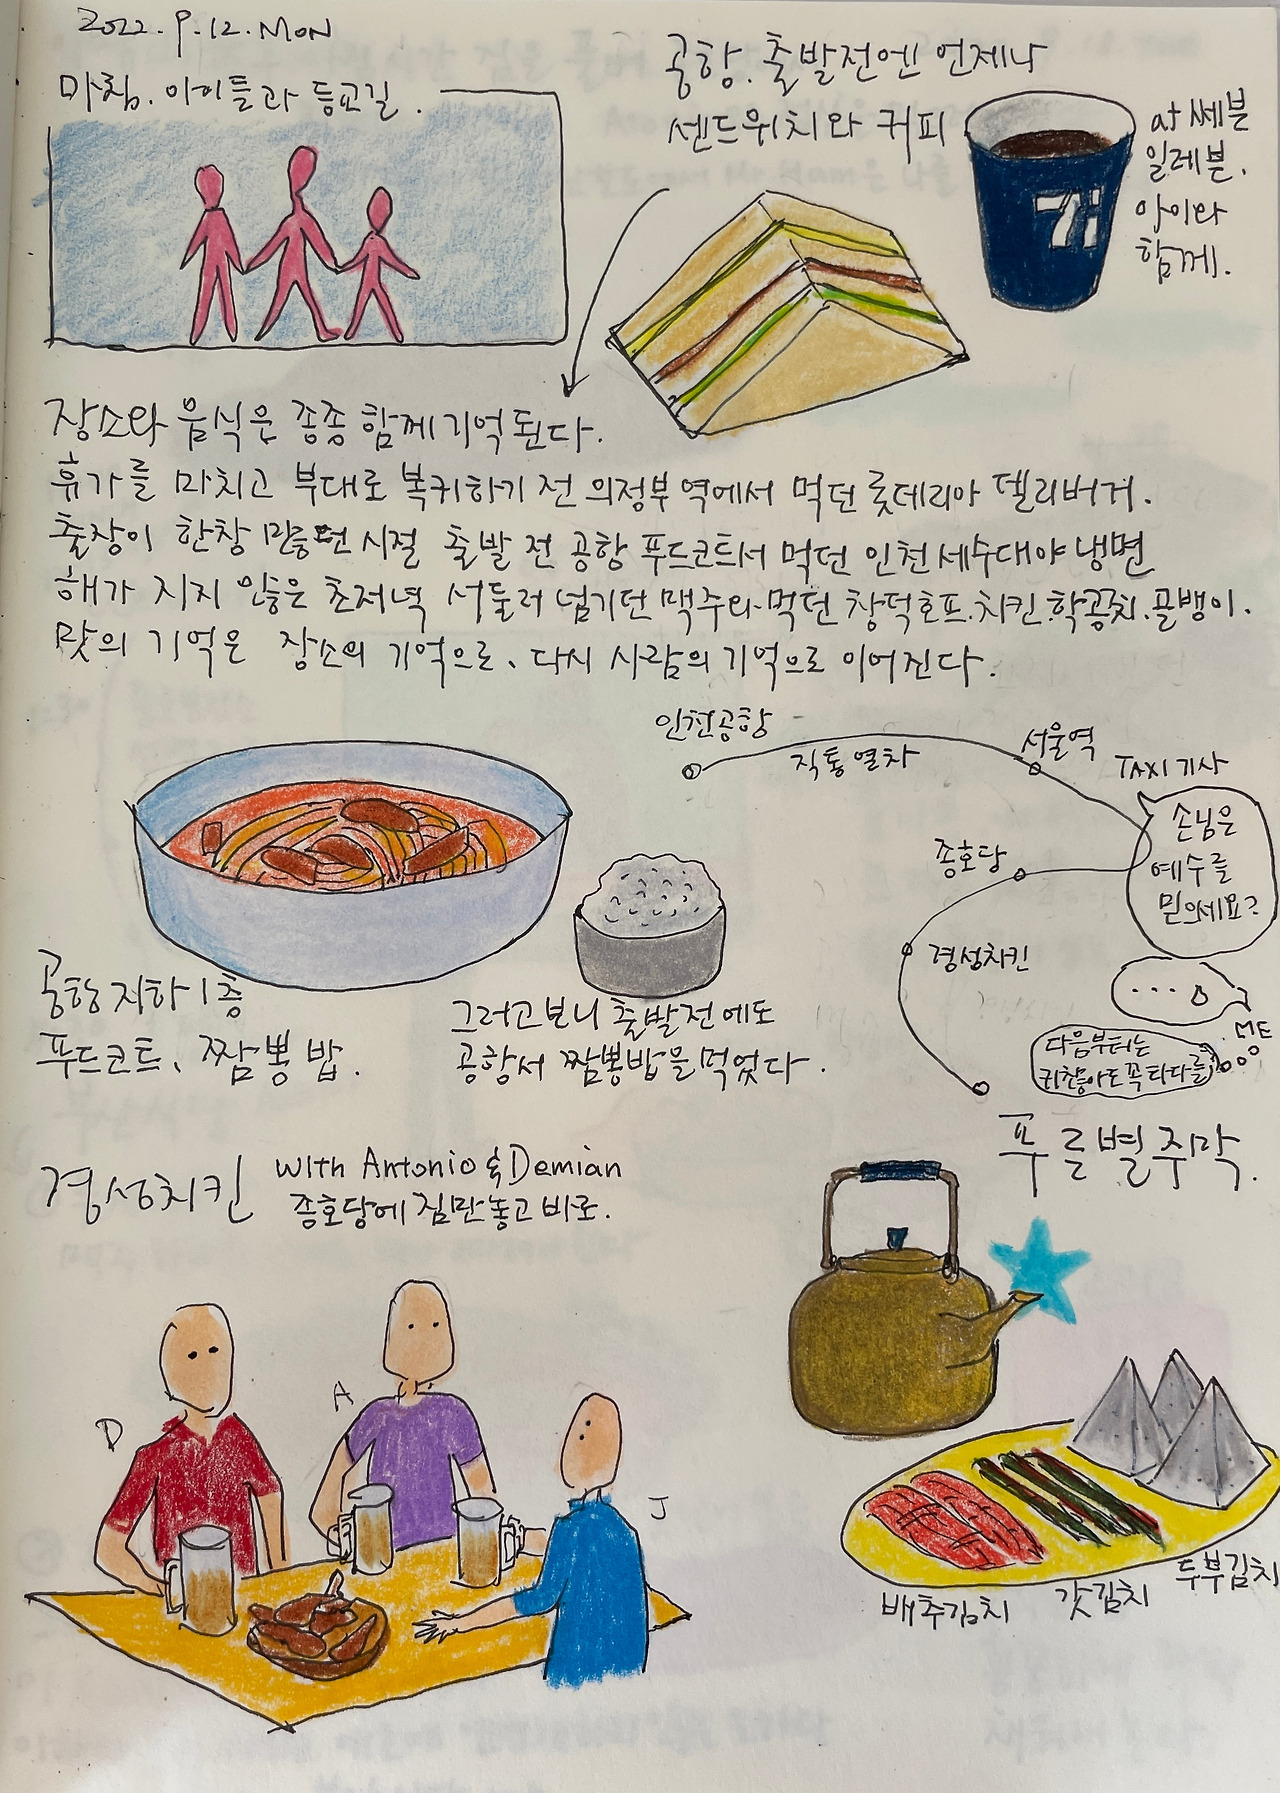 2022.9.12.MON
마침. 아이들과 등교길.
공항. 출발전엔 언제나
센드위치와 커피
at 쎄븐
일레븐.
아이와
함께.
7i
장소와 음식은 종종 함께 기억된다.
휴가를 마치고 부대로 복귀하기 전 의정부역에서 먹던 롯데리아 델리버거.
출장이 한창 많던 시절 출발 전 공항 푸드코트서 먹던 인천 세숫대야 냉면
해가 지지 않은 초저녁 서둘러 넘기던 맥주와 먹던 창덕호프.치킨.학공치.골뱅이.
맛의 기억은 장소의 기억으로, 다시 사람의 기억으로 이어진다.
인천공항
직통열차
서울역
TAXI 기사
손님은
예수를
믿으세요?
종호당
경성치킨
ME
다음부터는
귀찮아도 꼭 타다를
푸른별주막.
공항 지하 1층
푸드코트, 짬뽕밥.
그러고보니 출발전에도
공항서 짬뽕밥을 먹었다.
경성치킨
with Antonio & Demian
종호당에 짐만 놓고 바로.
D
A
J
배추김치
갓김치
두부김치